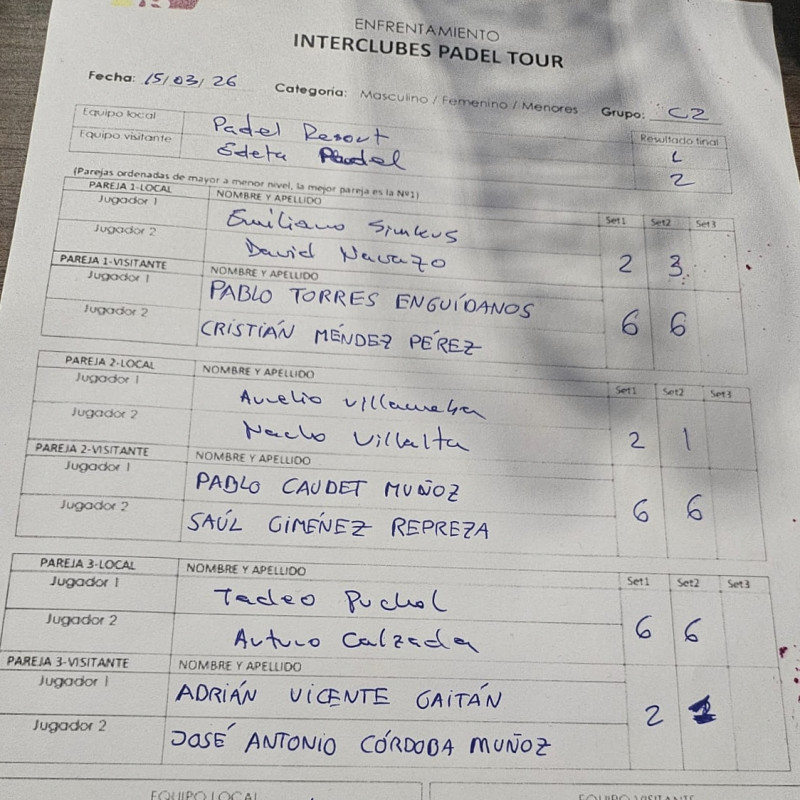 ENFRENTAMIENTO
INTERCLUBES PADEL TOUR
Fecha: 15/03/26 Categoría: Masculino / Femenino / Menores Grupo: C2
Equipo local Padel Resort Resultado final
Equipo visitante Edeta Padel 1
2
(Parejas ordenadas de mayor a menor nivel, la mejor pareja es la Nº1)
PAREJA 1-LOCAL NOMBRE Y APELLIDO Set1 Set2 Set3
Jugador 1 Emiliano Simkus
Jugador 2 David Navazo 2 3
PAREJA 1-VISITANTE NOMBRE Y APELLIDO
Jugador 1 PABLO TORRES ENGUÍDANOS
Jugador 2 CRISTIÁN MÉNDEZ PÉREZ 6 6
PAREJA 2-LOCAL NOMBRE Y APELLIDO Set1 Set2 Set3
Jugador 1 Aurelio
Jugador 2 Nacho Villalta 2 1
PAREJA 2-VISITANTE NOMBRE Y APELLIDO
Jugador 1 PABLO CAUDET MUÑOZ
Jugador 2 SAÚL GIMÉNEZ REPREZA 6 6
PAREJA 3-LOCAL NOMBRE Y APELLIDO Set1 Set2 Set3
Jugador 1 Tadeo Puchol
Jugador 2 Arturo Calzada 6 6
PAREJA 3-VISITANTE NOMBRE Y APELLIDO
Jugador 1 ADRIÁN VICENTE GAITÁN
Jugador 2 JOSÉ ANTONIO CÓRDOBA MUÑOZ 2
EQUIPO LOCAL EQUIPO VISITANTE